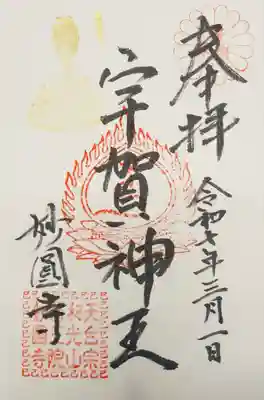 奉拝
令和七年三月一日
宇賀神王
妙圓寺
天台宗